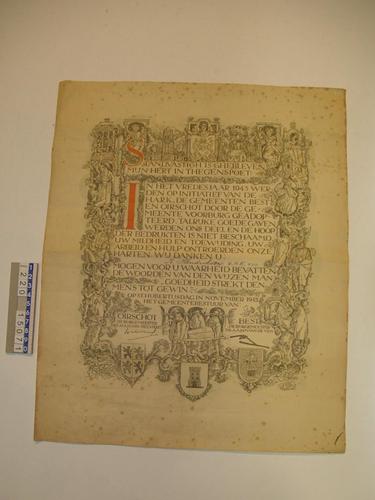 STANDVASTIGH IS GHEBLEVEN
MIJN HERT IN THEGENSPOET
IN HET VREDESJAAR 1945 WER-
DEN OP INITIATIEF VAN DE
H.A.R.K. DE GEMEENTEN BEST
EN OIRSCHOT DOOR DE GE-
MEENTE VOORBURG GEADOP-
TEERD. TALRIJKE GOEDE GAVEN
WERDEN ONS DEEL EN DE HOOP
DER BEDRUKTEN IS NIET BESCHAAMD
UW MILDHEID EN TOEWIJDING, UW
ARBEID EN HULP ONTROEREN ONZE
HARTEN. WIJ DANKEN U
MOGEN VOOR U WAARHEID BEVATTEN
DE WOORDEN VAN DEN WIJZEN MAN
GOEDHEID STREKT DEN
MENS TOT GEWIN
OP ST. HUBERTUSDAG IN NOVEMBER 1945
HET GEMEENTEBESTUUR VAN
OIRSCHOT
BEST
1220 15071